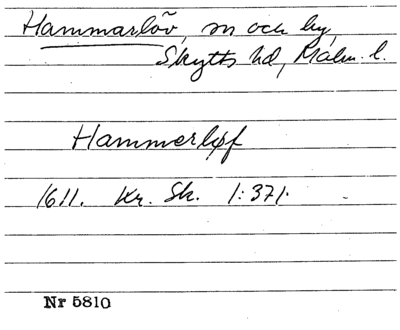 Hammarlöv, sn och by,
Skytts hd, Malm. l.
Hammerløf
1611. Kr. Sk. 1:371.
Nr 5810